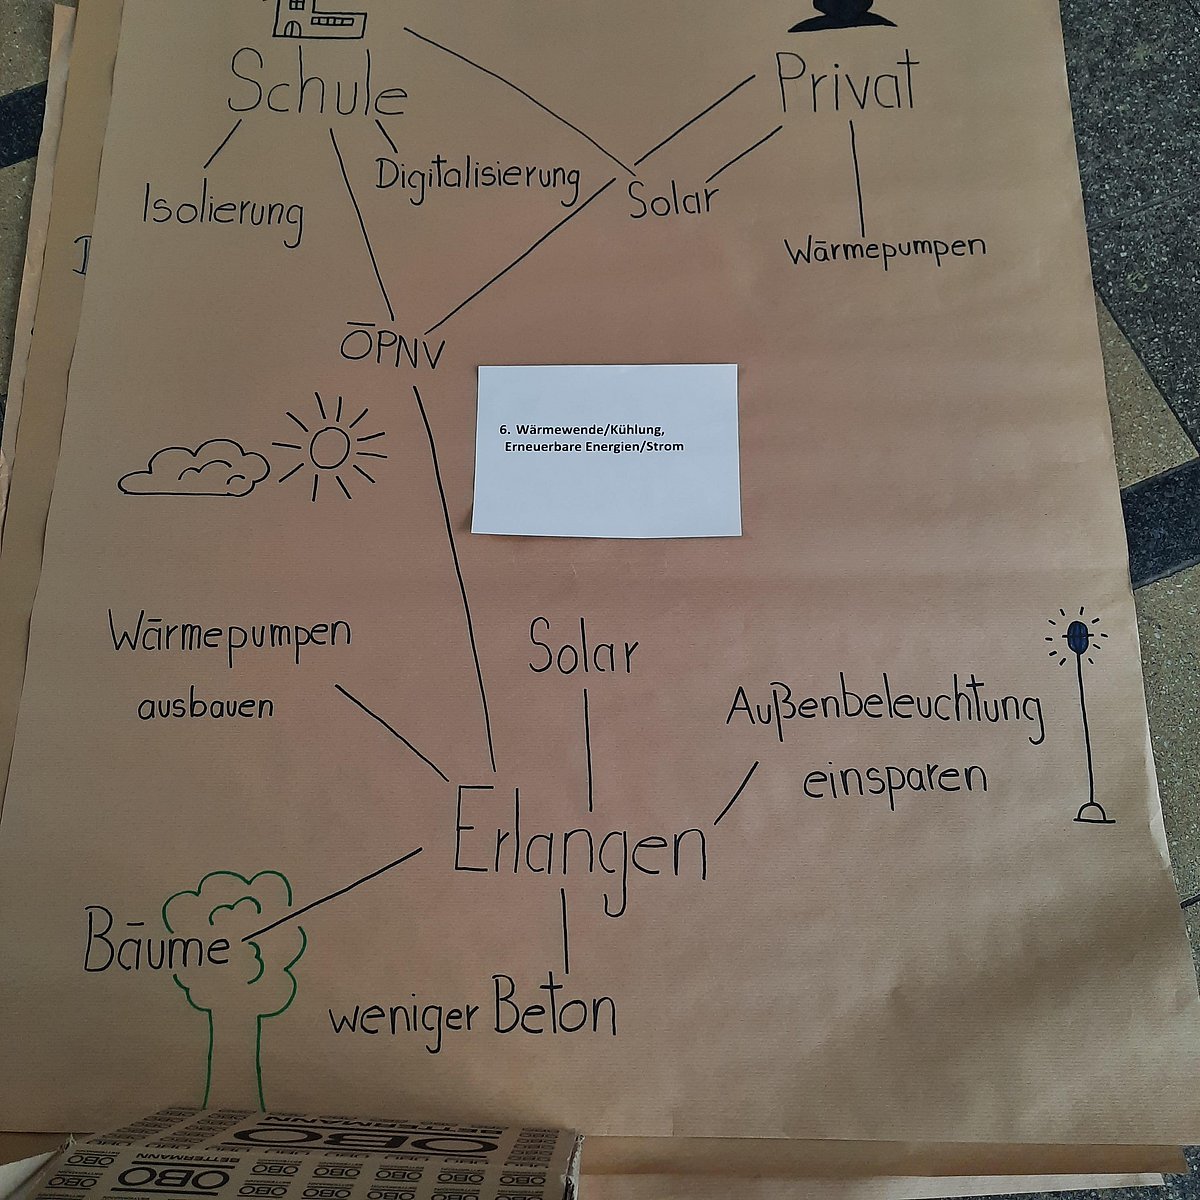 Schule
Privat
Isolierung
Digitalisierung
Solar
Wärmepumpen
ÖPNV
6. Wärmewende/Kühlung,
Erneuerbare Energien/Strom
Wärmepumpen
ausbauen
Solar
Außenbeleuchtung
einsparen
Erlangen
Bäume
weniger Beton
BETTERMANN
OBO
OBO
BETTERMANN
OBO